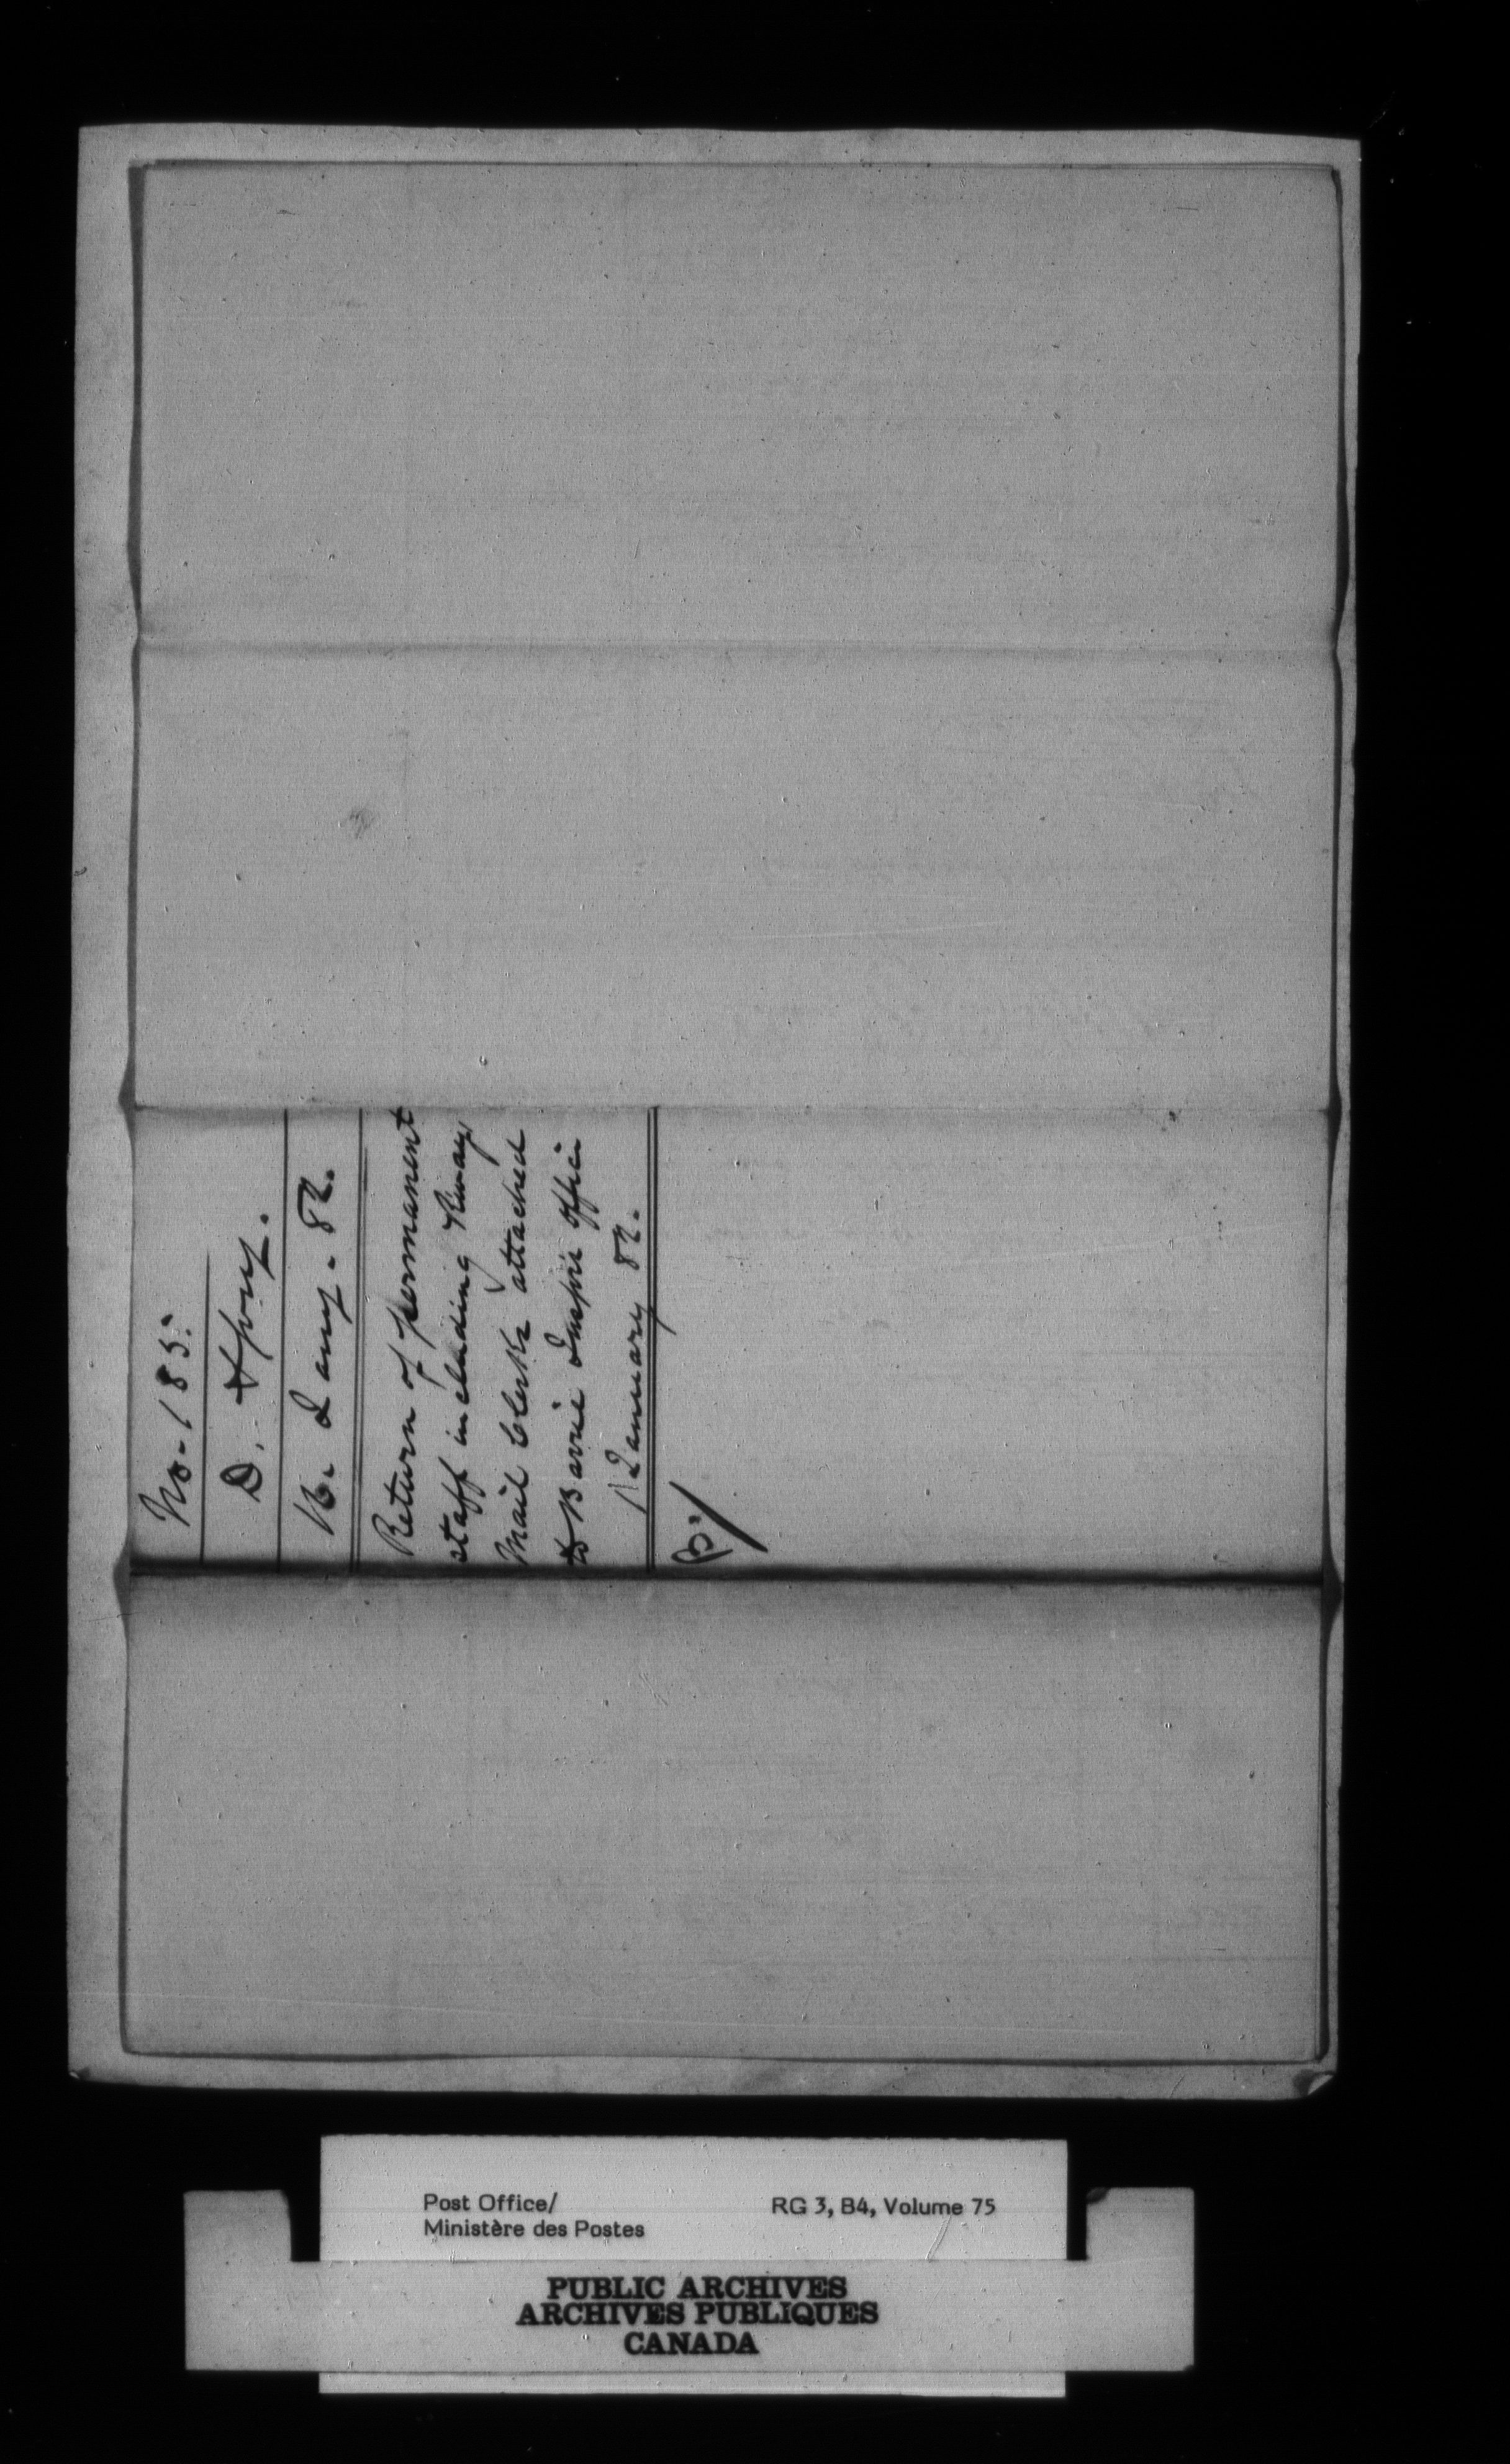 No. 185.
D.
16. Jany. 82.
Return of permanent
staff including R'way
Mail Clerks attached
to Barrie Insp'rs Office
1 January 82.
B.
Post Office/
Ministère des Postes
RG 3, B4, Volume 75
PUBLIC ARCHIVES
ARCHIVES PUBLIQUES
CANADA